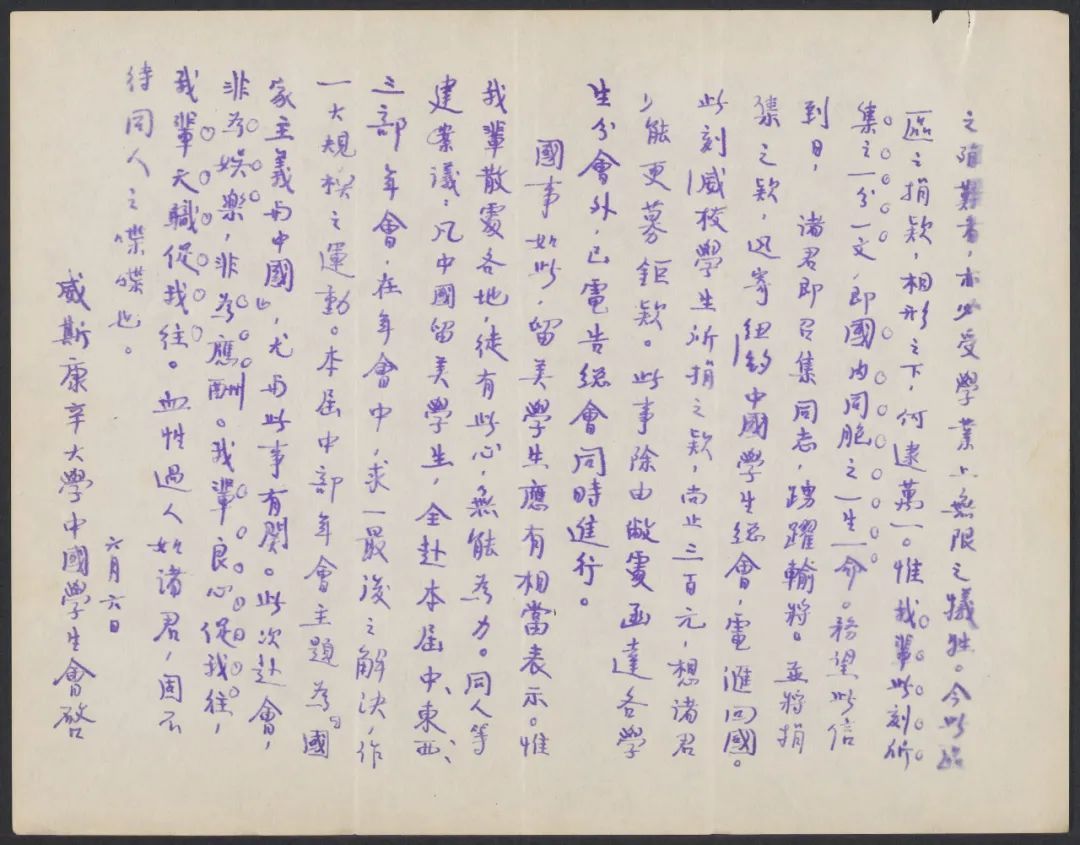 之隕蘀者，亦必受學業上無限之犧牲。今此區
區之捐欵，相形之下，何逮萬一。惟我輩此刻所
集之一分一文，即國內同胞之一生一命。務望此信
到日，諸君即召集同志，踴躍輸將。並將捐
集之欵，迅寄紐約中國學生總會，電滙回國。
此刻威校學生所捐之欵，尚止三百元，想諸君
必能更募鉅欵。此事除由敝處函達各學
生分會外，已電告總會同時進行。
國事如此，留美學生應有相當表示。惟
我輩散處各地，徒有此心，無能為力。同人等
建議，凡中國留美學生，全赴本屆中、東、西、
三部年會，在年會中，求一最後之解決，作
一大規模之運動。本屆中部年會主題為『國
家主義與中國』，尤與此事有関。此次赴會，
非為娛樂，非為應酬。我輩良心促我往，
我輩天職促我往。血性過人如諸君，固不
待同人之喋喋也。
六月六日
威斯康辛大學中國學生會啓